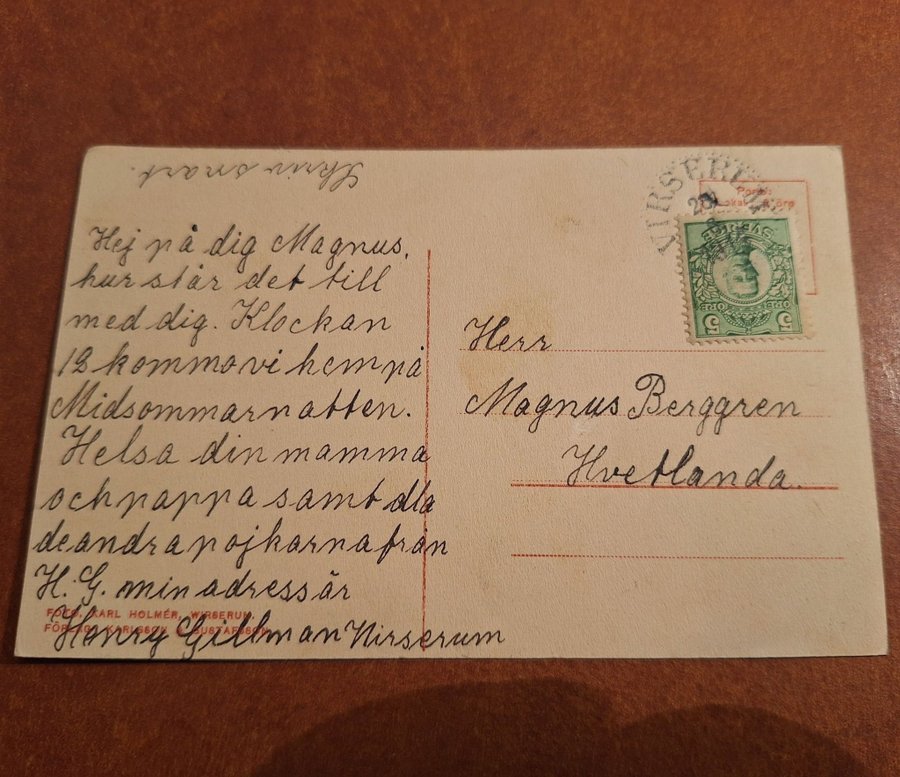 Skriv snart.
Hej på dig Magnus,
hur står det till
med dig. Klockan
12 komma vi hem på
Midsommarnatten.
Helsa din mamma
och pappa samt alla
de andra pojkarna från
H. G. min adress är
Henry Gillman Virserum
FOTO. KARL HOLMÉR, WIRSERUM.
KARLSSON & GUSTAFSSON
VIRSERUM
Porto:
Lokalt öre
SVERIGE
5 5
Herr
Magnus Berggren
Hvetlanda.